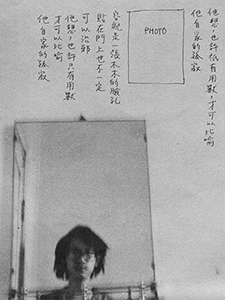 他想，也許只有用獸，才可以比喻
他自家的孤寂
PHOTO
容貌是一張木木的臉孔
貼在門上也不一定
可以治邪
他想，也許只有用獸
才可以比喻
他自家的孤寂